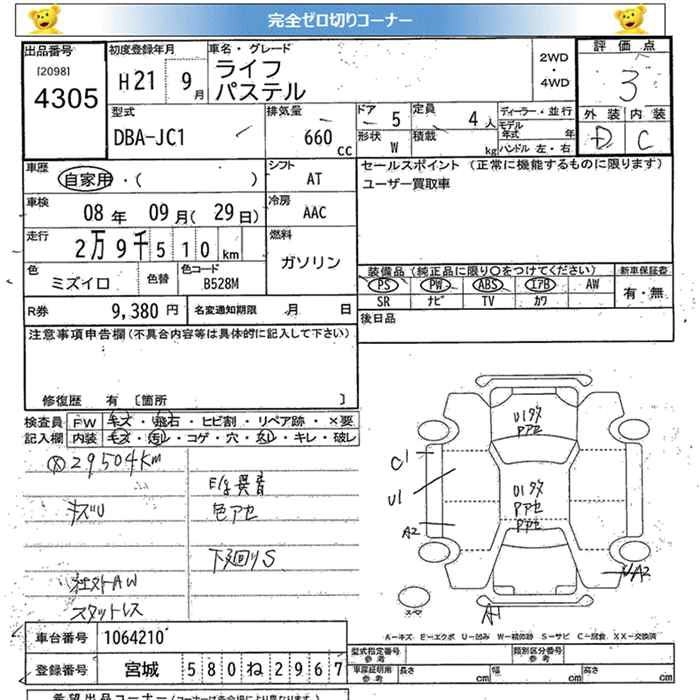 完全ゼロ切りコーナー
出品番号
[2098]
4305
初度登録年月
H21 9月
車名・グレード
ライフ
パステル
2WD
・
4WD
評価点
3
外装 内装
D C
型式
DBA-JC1
排気量
660 cc
ドア 5
形状 W
定員 4人
積載 kg
ディーラー・並行
モデル年式 年
ハンドル 左・右
車歴
自家用・( )
シフト
AT
車検
08年 09月(29日)
冷房
AAC
走行
2万9千510km
燃料
ガソリン
色
ミズイロ
色替
色コード
B528M
R券 9,380円
名変通知期限 月 日
セールスポイント (正常に機能するものに限ります)
ユーザー買取車
装備品 (純正品に限り○をつけてください)
PS PW ABS エアB AW
SR ナビ TV カワ
新車保証書
有・無
後日品
注意事項申告欄(不具合内容等は具体的に記入して下さい)
修復歴 有 [箇所 ]
検査員記入欄
FW キズ・飛石・ヒビ割・リペア跡・×要
内装 キズ・汚レ・コゲ・穴・スレ・キレ・破レ
29504km
キズU
E/G異音
色アセ
下廻りS
社外AW
スタットレス
U1タタ
Pアセ
U1タタ
Pアセ
Pアセ
C1
U1
A2
A2
A1
スヤ
A-キズ E-エクボ U-凹み W-補修跡 S-サビ C-腐食 XX-交換済
車台番号 1064210
登録番号 宮城 580ね2967
型式指定番号 参考
類別区分番号 参考
車庫証明用 参考 長さ cm 幅 cm 高さ cm
希望出品コーナー